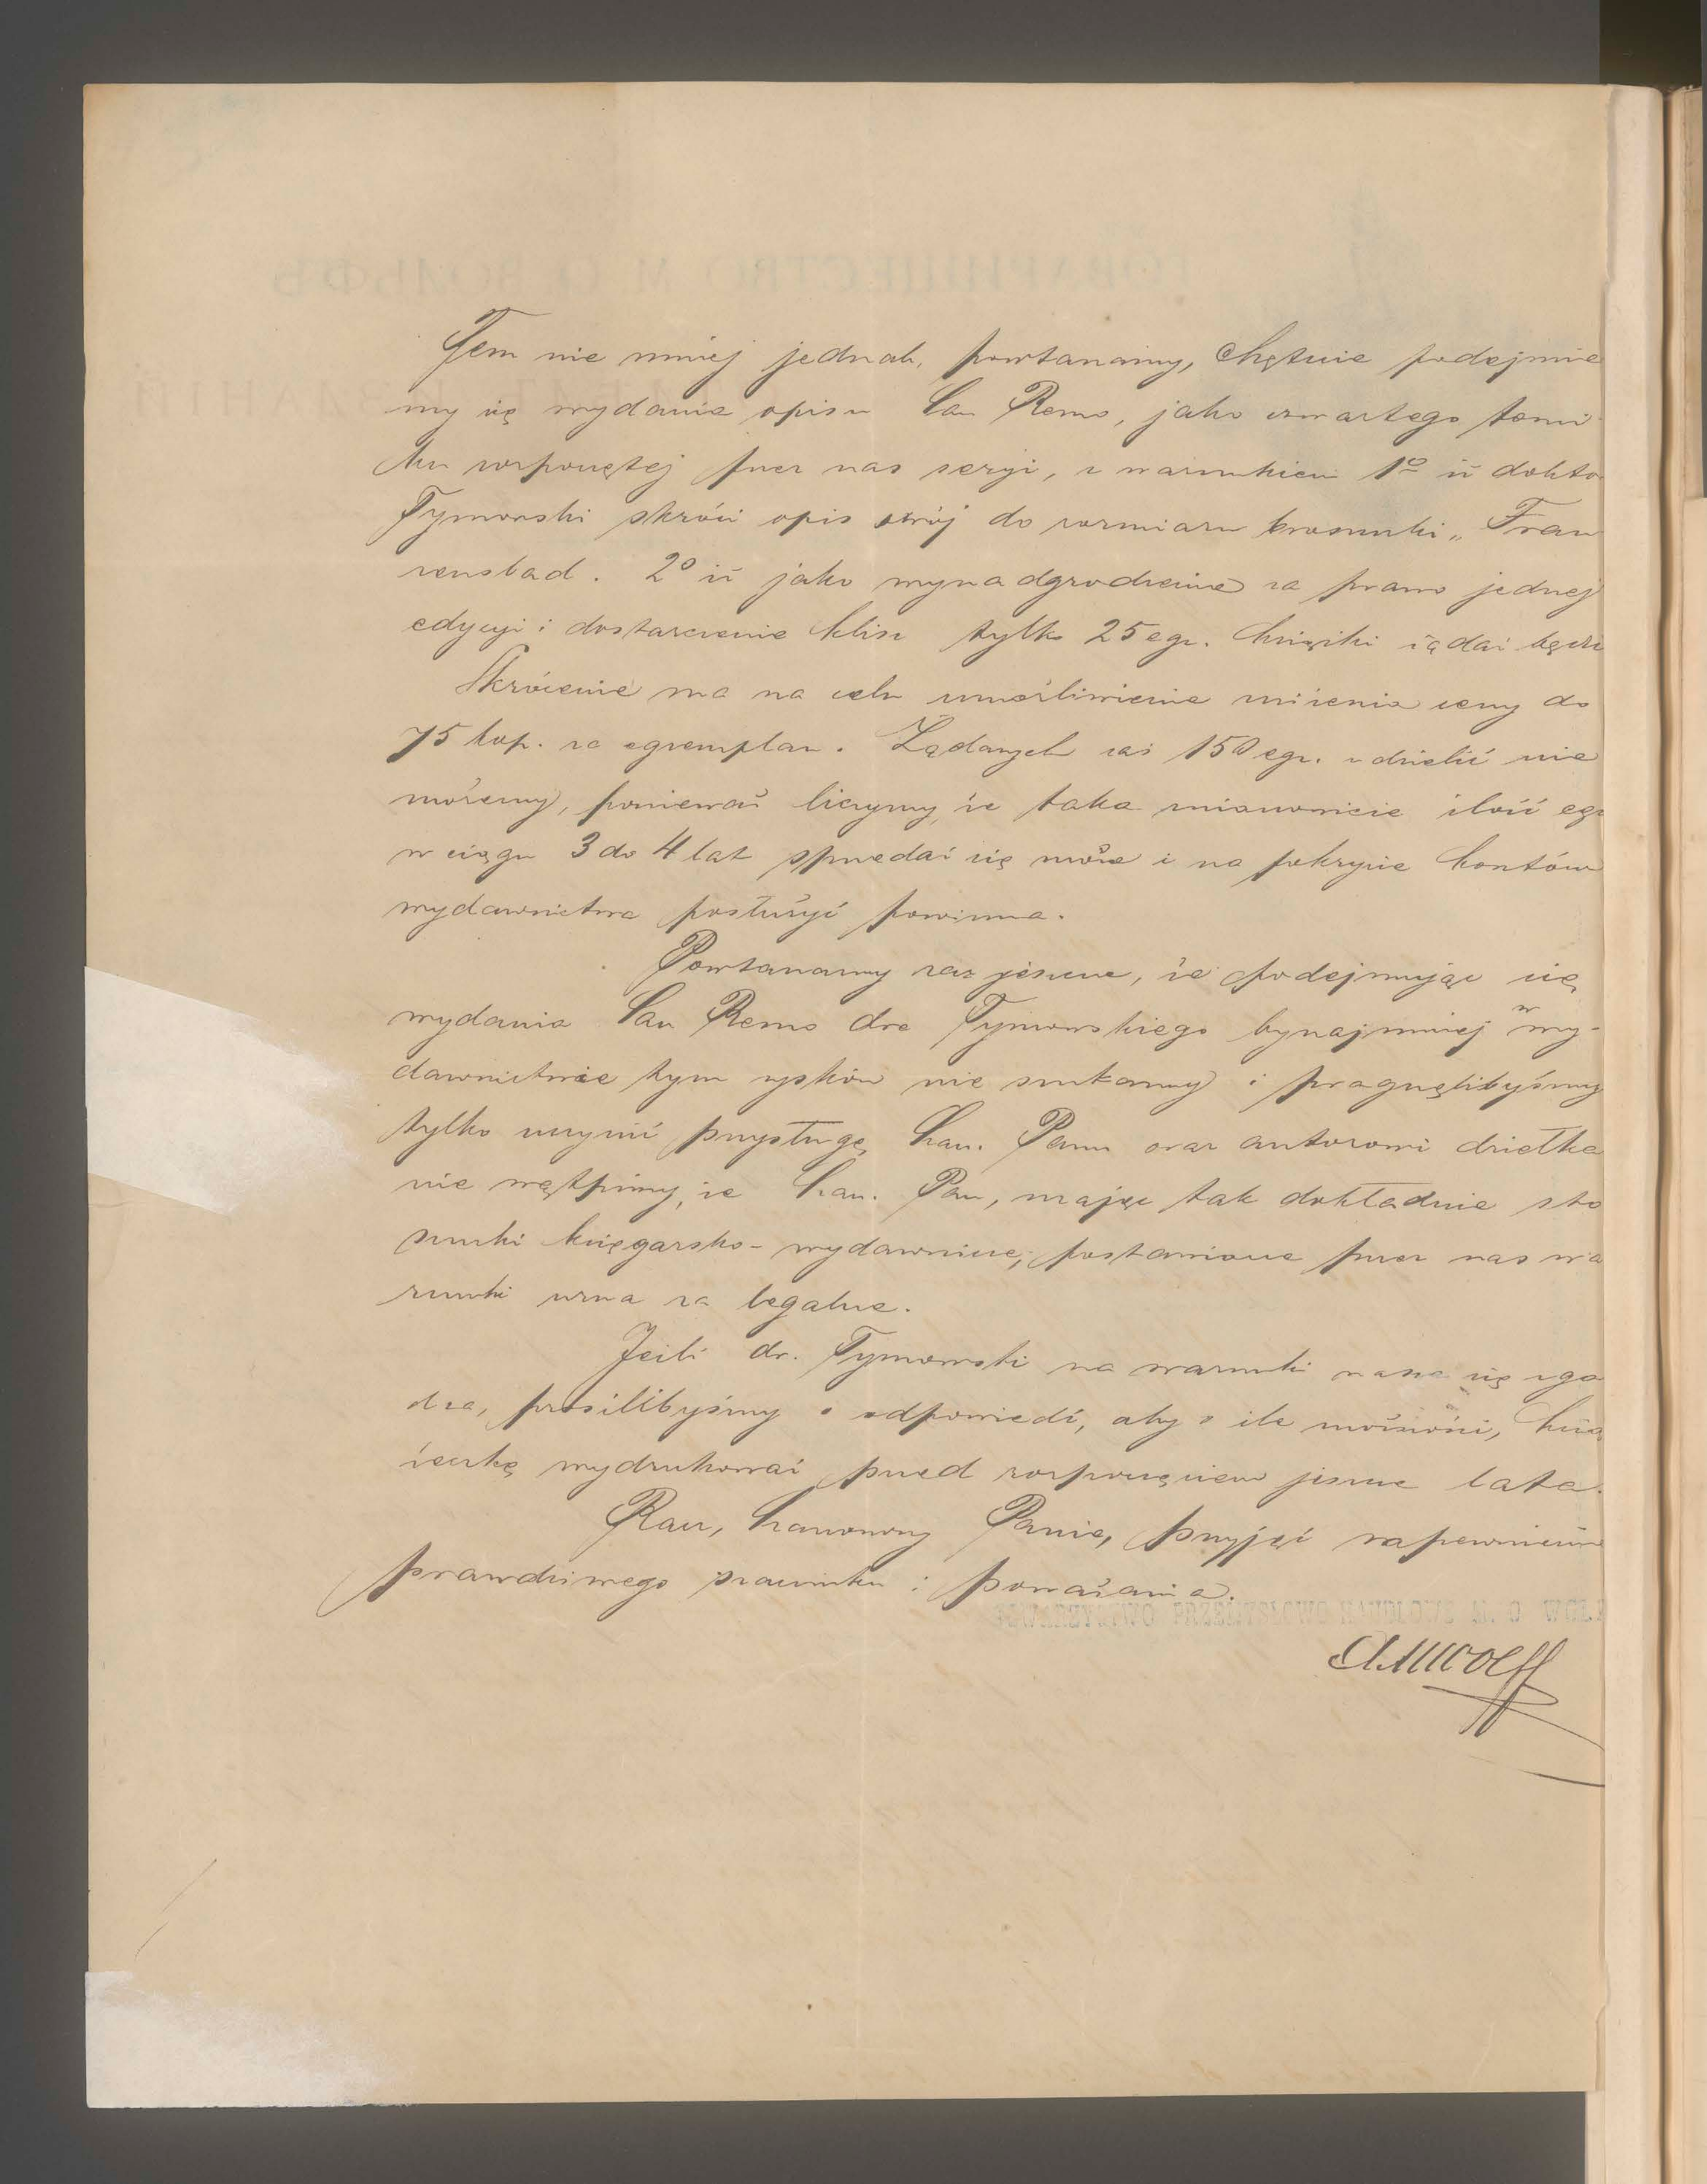 Tem nie mniej jednak, powtarzamy, chętnie podejmie
my się wydania opisu San Remo, jako czwartego tomi-
ku rozpoczętej przez nas seryi, z warunkiem 1º iż dokto
Tymowski skróci opis swój do rozmiaru broszurki „Fran
zensbad. 2º iż jako wynagrodzenie za prawo jednej
edycyi i dostarczenie klisz tylko 25 egz. książki żądać będzie
Skrócenie ma na celu umożliwienie zniżenia ceny do
75 kop. za egzemplarz. Żądanych zaś 150 egz. udzielić nie
możemy, ponieważ liczymy, że taka mianowicie ilość egz
w ciągu 3 do 4 lat sprzedać się może i na pokrycie kosztów
wydawnictwa posłużyć powinna.
Powtarzamy raz jeszcze, że podejmując się
wydania San Remo dra Tymowskiego bynajmniej w wy-
dawnictwie tym zysków nie szukamy i pragnęlibyśmy
tylko uczynić przysługę Szan. Panu oraz autorowi dziełka
nie wątpimy, że Szan. Pan, znając tak dokładnie sto
sunki księgarsko-wydawnicze, postawione przez nas wa
runki uzna za legalne.
Jeśli dr. Tymowski na warunki nasze się zga
dza, prosilibyśmy o odpowiedź, aby o ile możności, ksią
żeczkę wydrukować przed rozpoczęciem jeszcze lata.
Racz, Szanowny Panie, przyjąć zapewnienie
prawdziwego szacunku i poważania.
AMWolff